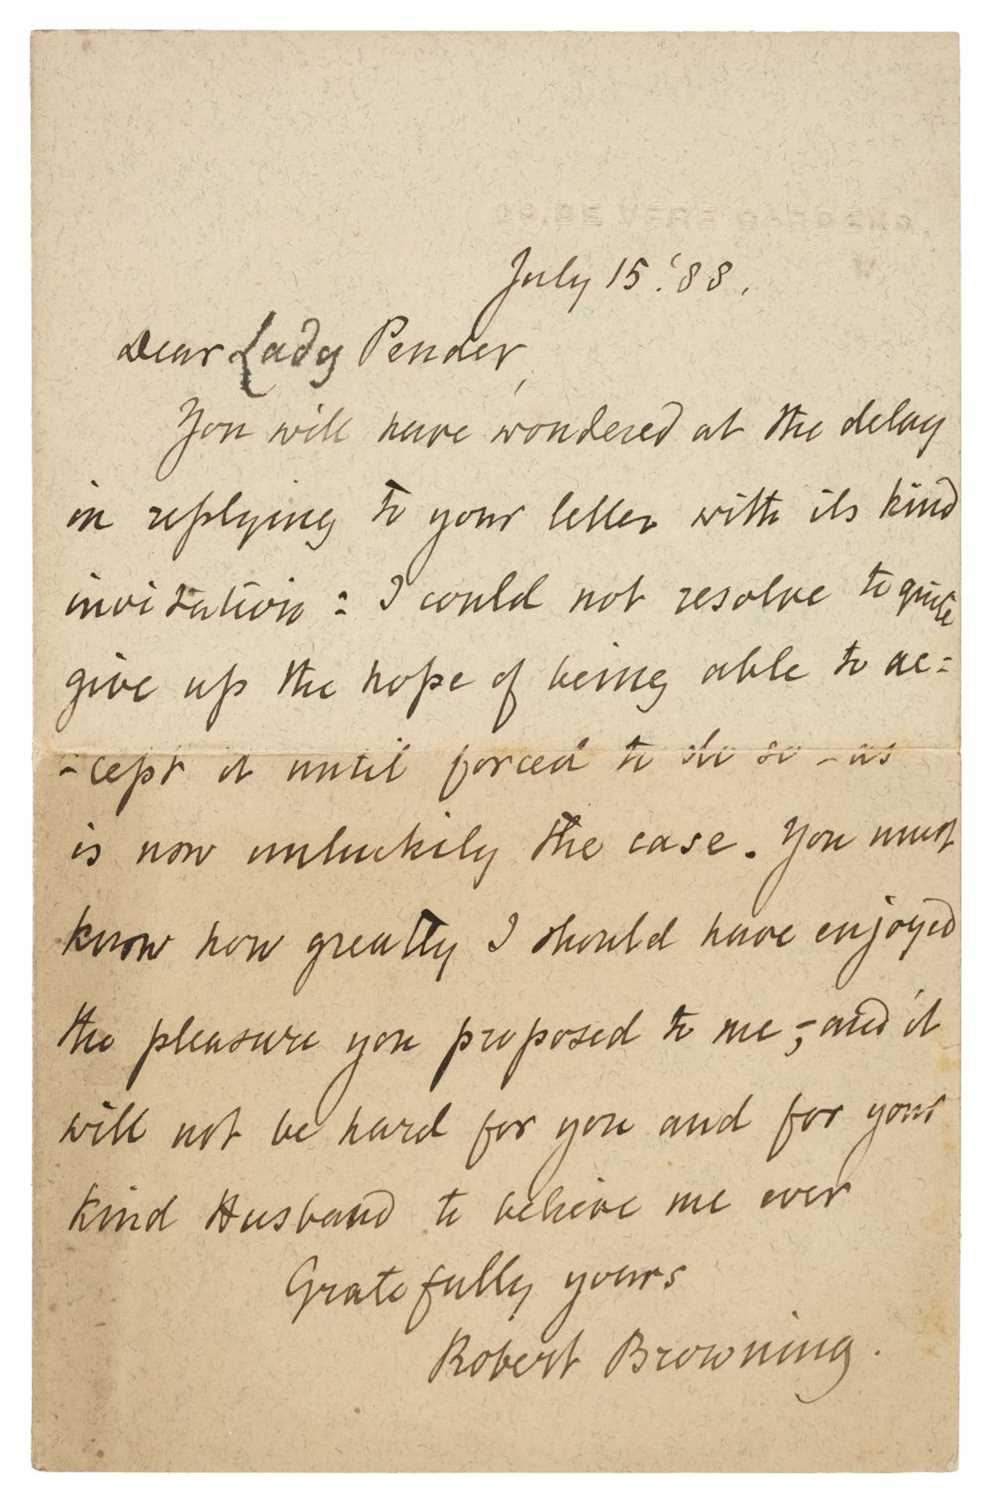 July 15. '88.
Dear Lady Pender,
You will have wondered at the delay
in replying to your letter with its kind
invitation : I could not resolve to quite
give up the hope of being able to ac=
-cept it until forced to do so - as
is now unluckily the case. You must
know how greatly I should have enjoyed
the pleasure you proposed to me ;- and it
will not be hard for you and for your
kind Husband to believe me ever
Gratefully yours
Robert Browning.